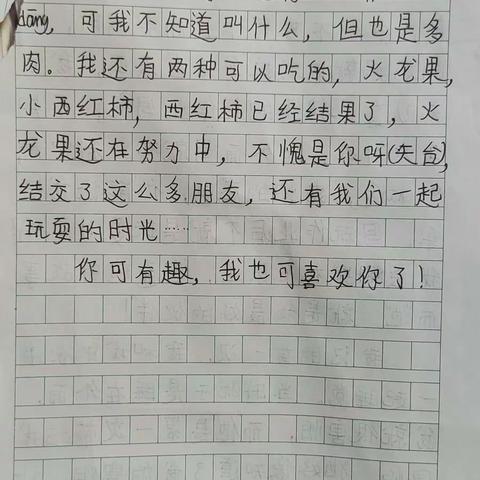 dāng，可我不知道叫什么，但也是多
肉。我还有两种可以吃的，火龙果，
小西红柿，西红柿已经结果了，火
龙果还在努力中，不愧是你呀(天台)，
结交了这么多朋友，还有我们一起
玩耍的时光……
你可有趣，我也可喜欢你了！